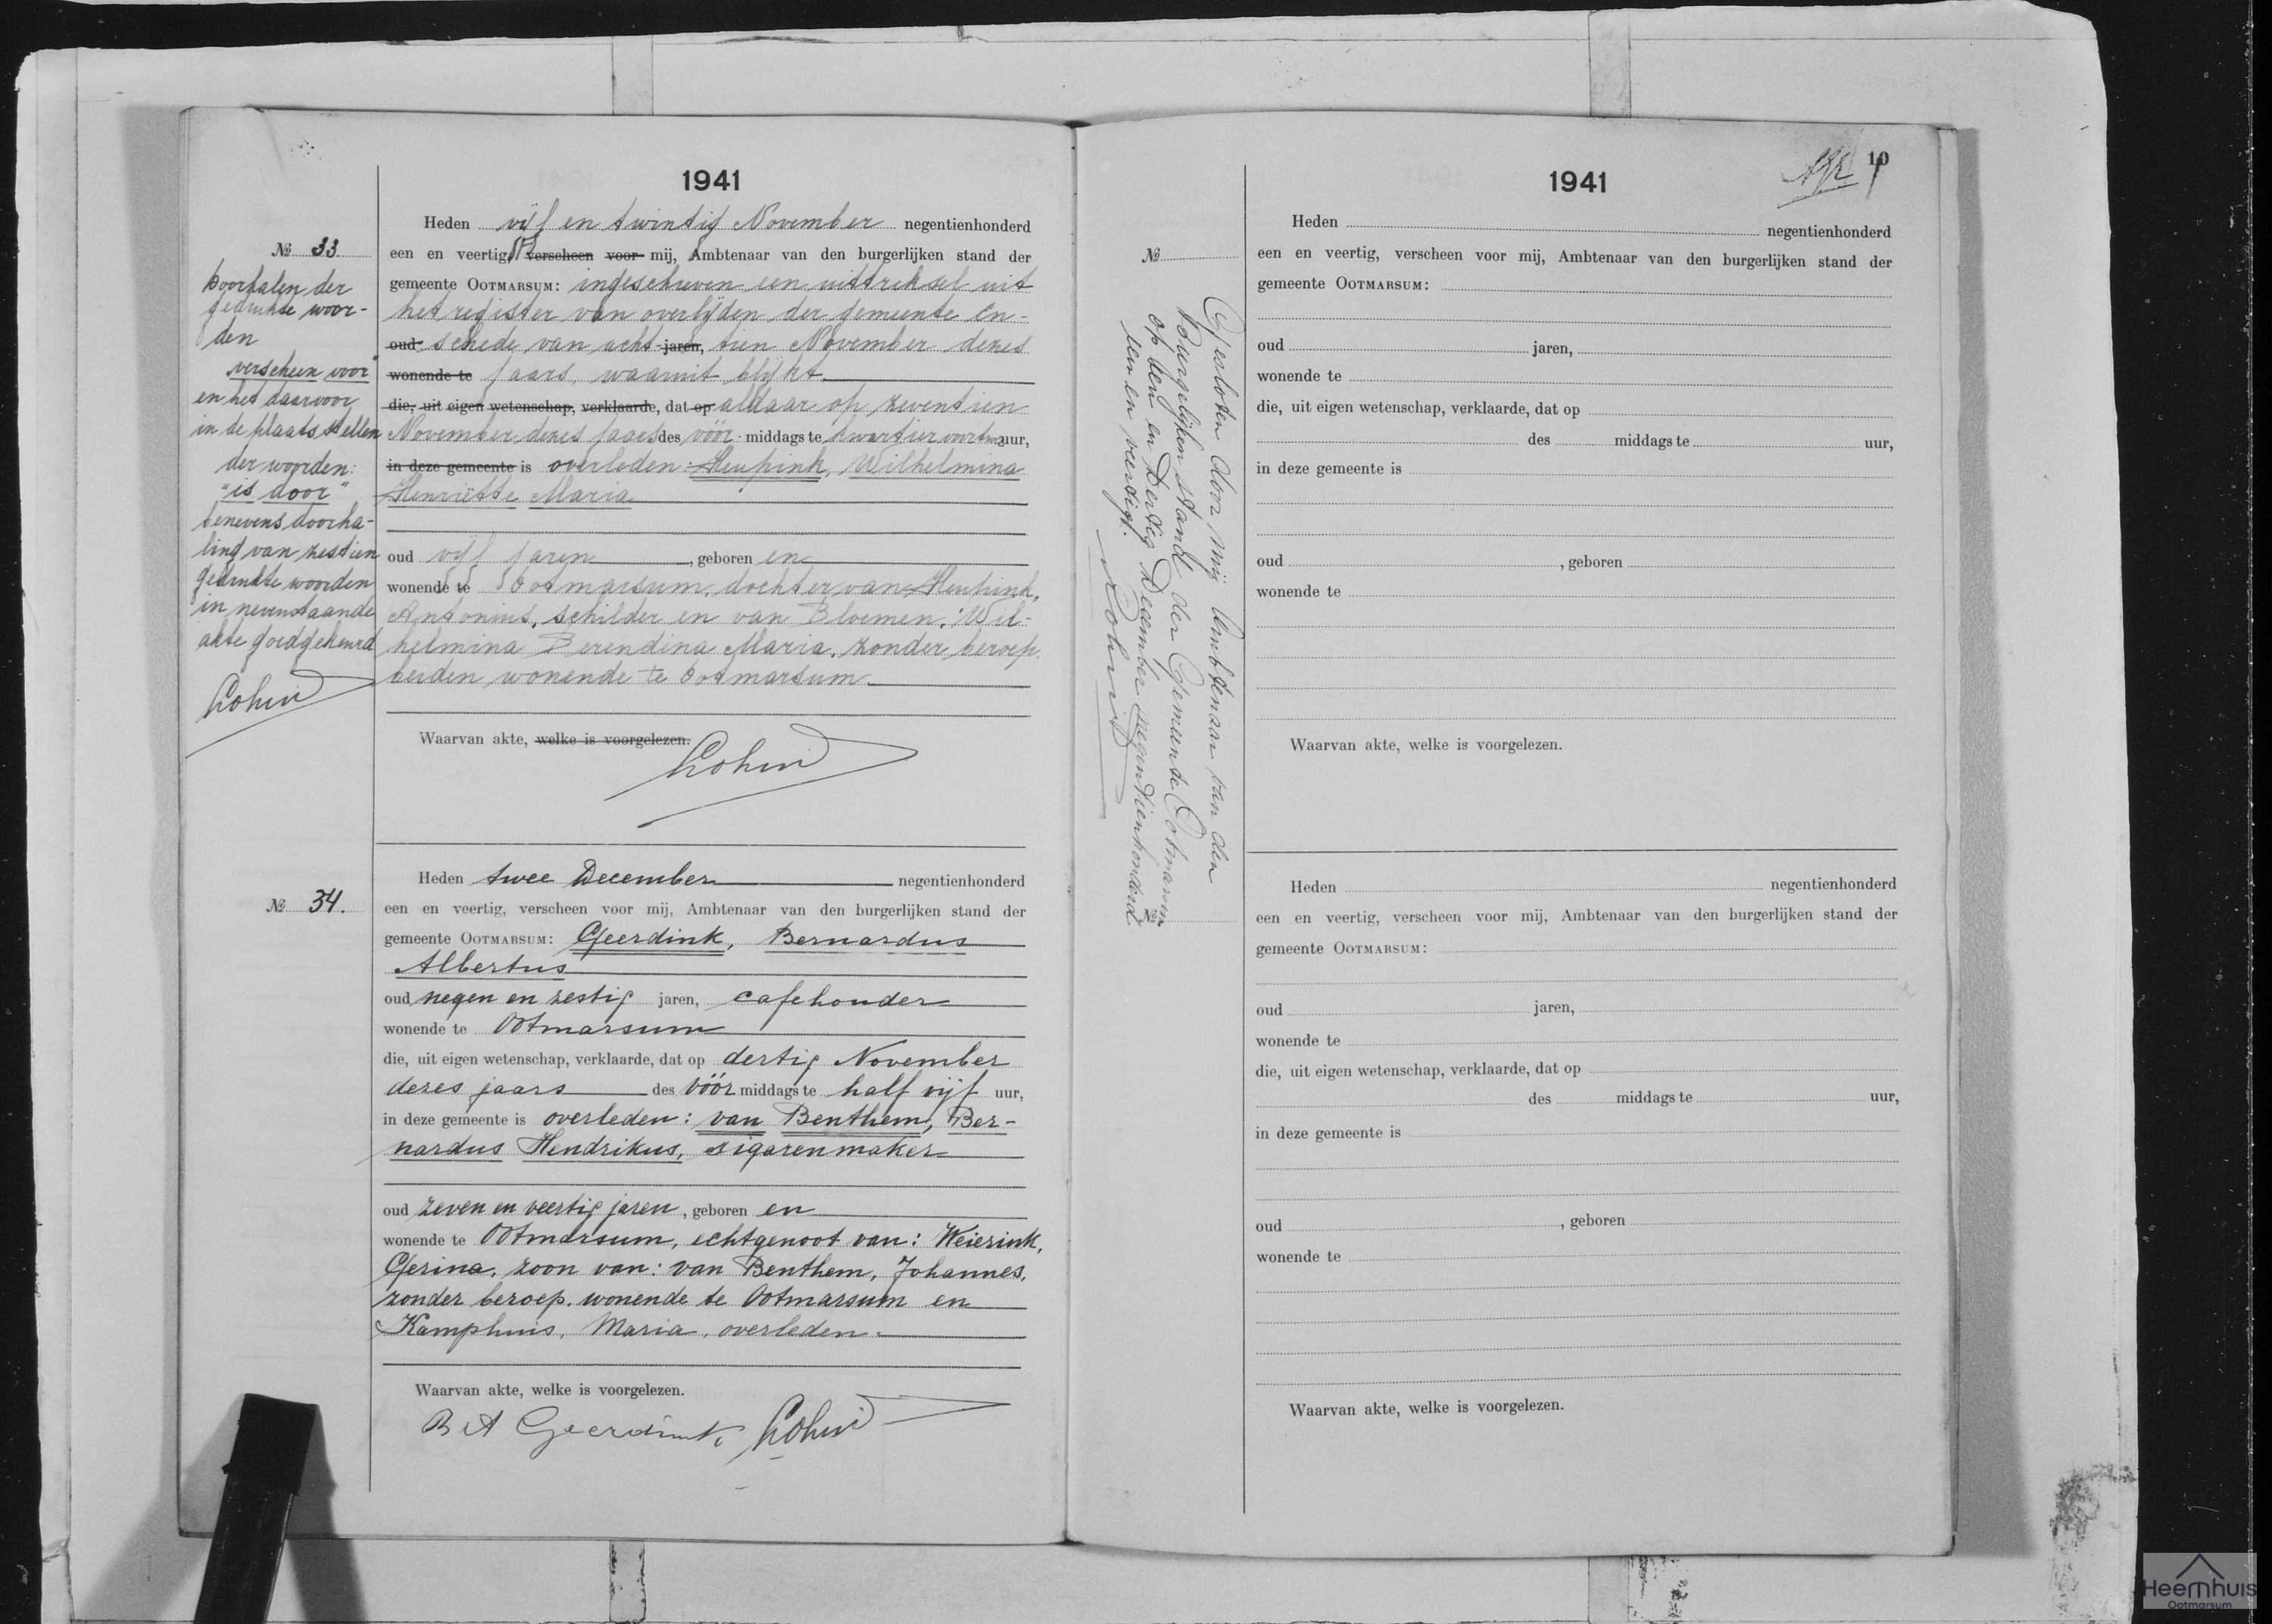 1941
№ 33
Doorhalen der
gedrukte woor-
den
„verscheen voor"
en het daarvoor
in de plaats stellen
der woorden:
"is door"
benevens doorha-
ling van zestien
gedrukte woorden
in nevenstaande
akte goedgekeurd
Heden vijf en twintig November negentienhonderd
een en veertig, verscheen voor mij, Ambtenaar van den burgerlijken stand der
gemeente OOTMARSUM: ingeschreven een uittreksel uit
het register van overlijden der gemeente En-
oud schede van acht jaren, tien November dezes
wonende te jaars, waaruit blijkt
die, uit eigen wetenschap, verklaarde, dat op aldaar op zeventien
November dezes jaars des vóór middags te kwartier voor uur,
in deze gemeente is overleden: Heupink, Wilhelmina
Henriëtte Maria
oud vijf jaren, geboren en
wonende te Ootmarsum, dochter van Heupink,
Antonius, schilder en van Bloemen, Wil-
helmina Berendina Maria, zonder beroep,
beiden wonende te Ootmarsum.
Waarvan akte, welke is voorgelezen.
№ 34.
Heden twee December negentienhonderd
een en veertig, verscheen voor mij, Ambtenaar van den burgerlijken stand der
gemeente OOTMARSUM: Geerdink, Bernardus
Albertus
oud negen en zestig jaren, cafehouder
wonende te Ootmarsum
die, uit eigen wetenschap, verklaarde, dat op dertig November
dezes jaars des vóór middags te half vijf uur,
in deze gemeente is overleden: van Benthem, Ber-
nardus Hendrikus, sigarenmaker
oud zeven en veertig jaren, geboren en
wonende te Ootmarsum, echtgenoot van: Weierink,
Gerina, zoon van: van Benthem, Johannes,
zonder beroep, wonende te Ootmarsum en
Kamphuis, Maria, overleden.
Waarvan akte, welke is voorgelezen.
B A Geerdink
Gesloten door mij Ambtenaar van den
Burgelijken stand der Gemeente Ootmarsum
op den en Dertig December negentienhonderd
een en veertig.
1941
10
№
Heden negentienhonderd
een en veertig, verscheen voor mij, Ambtenaar van den burgerlijken stand der
gemeente OOTMARSUM:
oud jaren,
wonende te
die, uit eigen wetenschap, verklaarde, dat op
des middags te uur,
in deze gemeente is
oud , geboren
wonende te
Waarvan akte, welke is voorgelezen.
№
Heden negentienhonderd
een en veertig, verscheen voor mij, Ambtenaar van den burgerlijken stand der
gemeente OOTMARSUM:
oud jaren,
wonende te
die, uit eigen wetenschap, verklaarde, dat op
des middags te uur,
in deze gemeente is
oud , geboren
wonende te
Waarvan akte, welke is voorgelezen.
Heemhuis
Ootmarsum